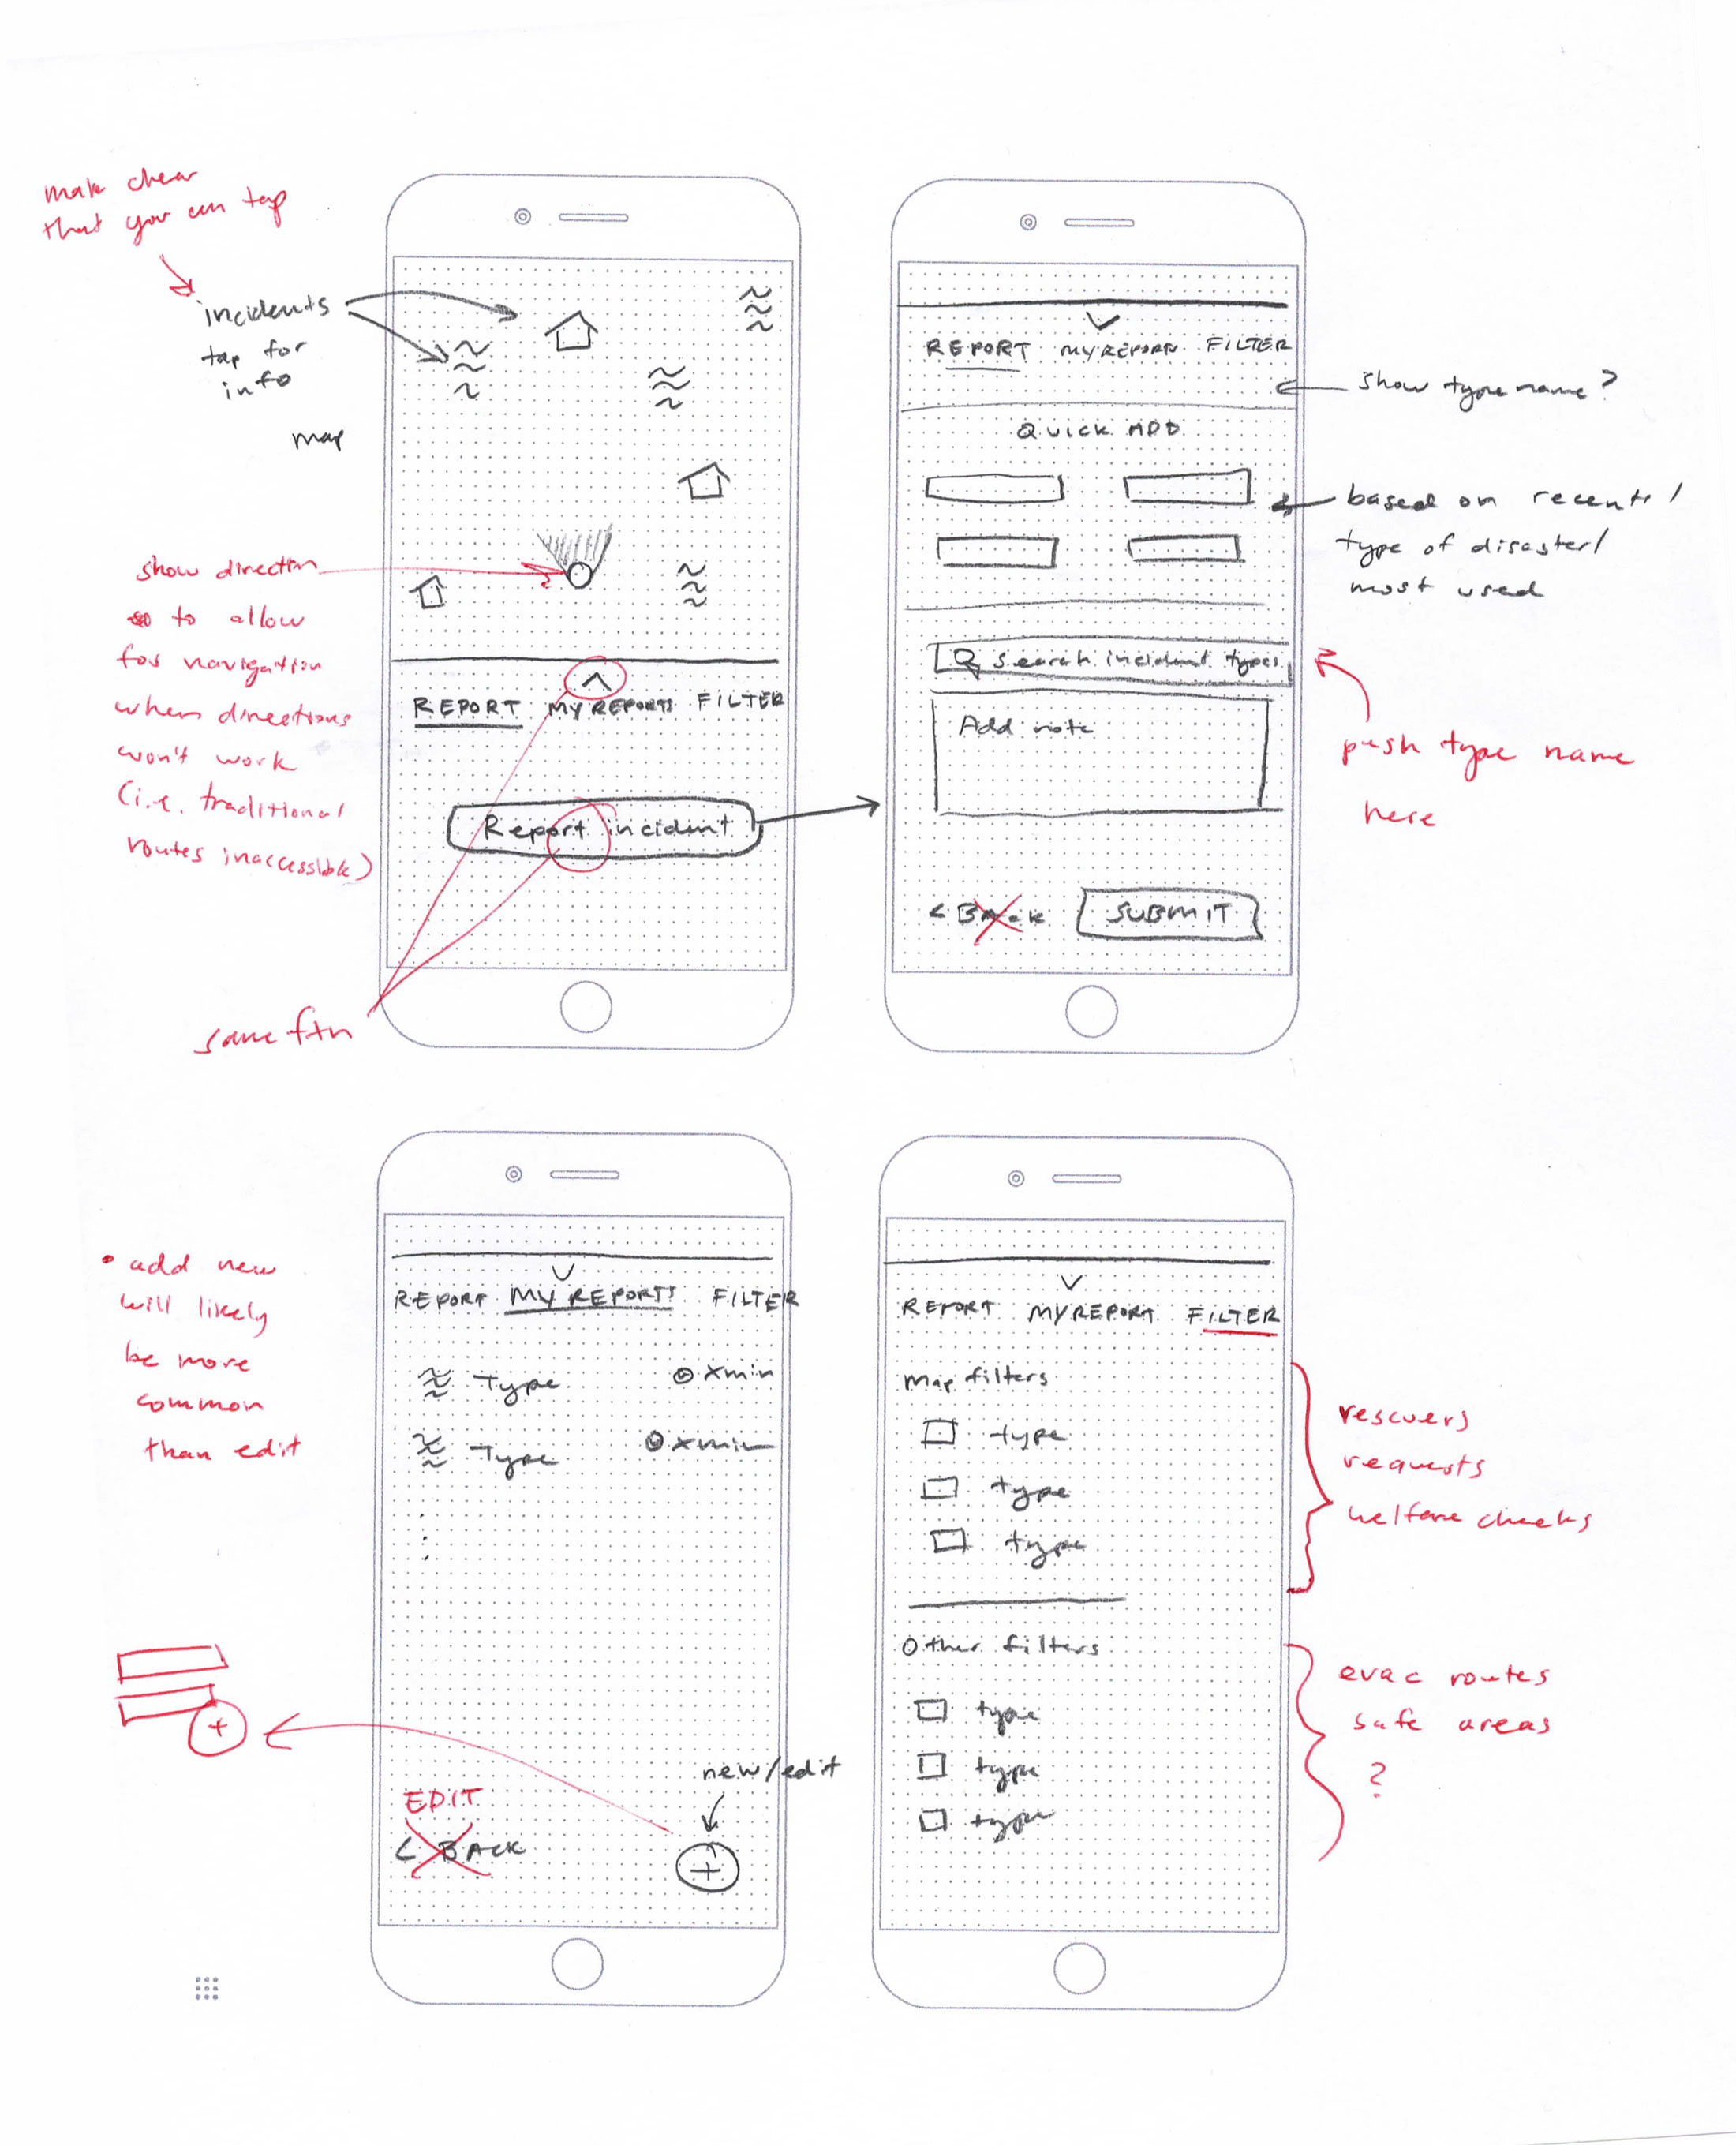 make clear
that you can tap
incidents
tap for
info
map
show direction
so to allow
for navigation
when directions
won't work
(i.e. traditional
routes inaccessible)
^
REPORT MY REPORTS FILTER
Report incident
same ftn
REPORT MY REPORTS FILTER
show type name?
QUICK ADD
based on recent/
type of disaster/
most used
Search incident types
Add note
push type name
here
< BACK SUBMIT
• add new
will likely
be more
common
than edit
REPORT MY REPORTS FILTER
Type xmin
Type xmin
+
new/edit
EDIT
< BACK
+
REPORT MY REPORT FILTER
Map filters
type
type
type
rescuers
requests
welfare checks
Other filters
type
type
type
evac routes
safe areas
?